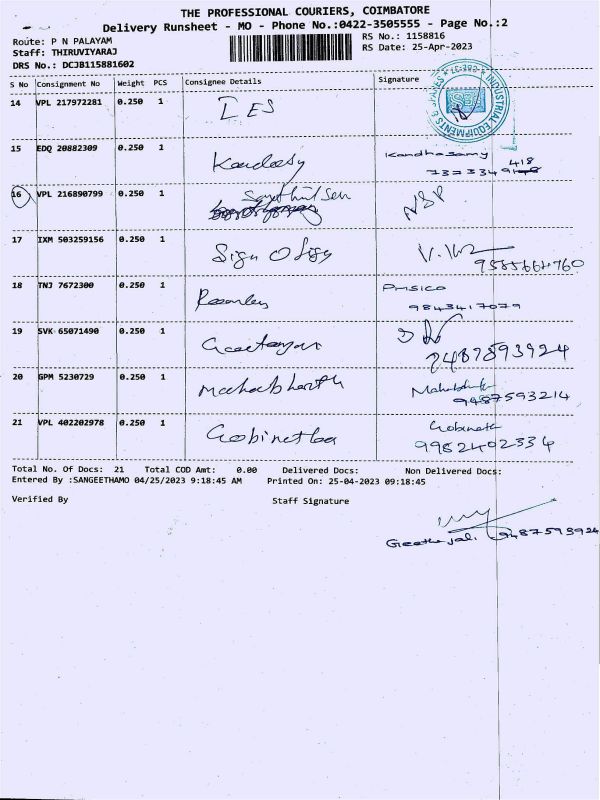 THE PROFESSIONAL COURIERS, COIMBATORE
Delivery Runsheet - MO - Phone No.:0422-3505555 - Page No.:2
Route: P N PALAYAM
RS No.: 1158816
Staff: THIRUVIYARAJ
RS Date: 25-Apr-2023
DRS No.: DCJB115881602
S No Consignment No Weight PCS Consignee Details Signature
14 VPL 217972281 0.250 1 IES
INDUSTRIAL EQUIPMENTS &
15 EDQ 20882309 0.250 1 Kandhasamy
418
16 VPL 216890799 0.250 1 NSP
17 IXM 503259156 0.250 1 Sign O
9585664760
18 TNJ 7672300 0.250 1
9843417079
19 SVK 65071490 0.250 1
2487593924
20 GPM 5230729 0.250 1 Mahabharth
9487593214
21 VPL 402202978 0.250 1 Gobinath Gobinath
9982402334
Total No. Of Docs: 21 Total COD Amt: 0.00 Delivered Docs: Non Delivered Docs:
Entered By :SANGEETHAMO 04/25/2023 9:18:45 AM Printed On: 25-04-2023 09:18:45
Verified By Staff Signature
9487593924